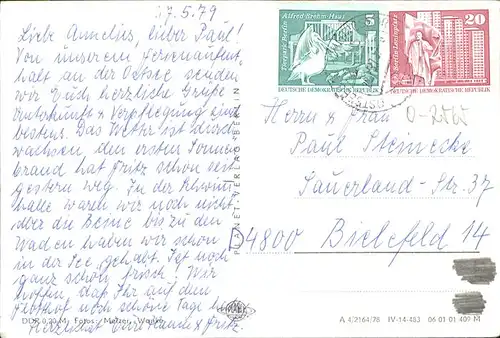 17.5.79
Liebe Annelies, lieber Paul!
Von unserem Ferienaufent-
halt an der Ostsee senden
wir Euch herzliche Grüße
Unterkunft + Verpflegung sind
bestens. Das Wetter ist durch
wachsen den ersten Sonnen
brand hat Fritz schon seit
gestern weg. In der Schwimm
halle waren wir noch nicht,
aber die Beine bis zu den
Waden haben wir schon
in der See gehabt. Ist noch
ganz schön frisch! Wir
hoffen, daß Ihr auf dem
noch schöne Tage
Herzlichst Fritz.
PLANET-VERLAG BERLIN
Alfred-Brehm-Haus
Tierpark Berlin
5
DEUTSCHE DEMOKRATISCHE REPUBLIK
20
Berlin · Leninplatz
DEUTSCHE DEMOKRATISCHE REPUBLIK
Herrn & Frau
Paul Steinecke
Sauerland-Str. 37
D 4800 Bielefeld 14
DDR 0,20 M
A 4/2164/78 IV-14-483 06 01 01 409 M